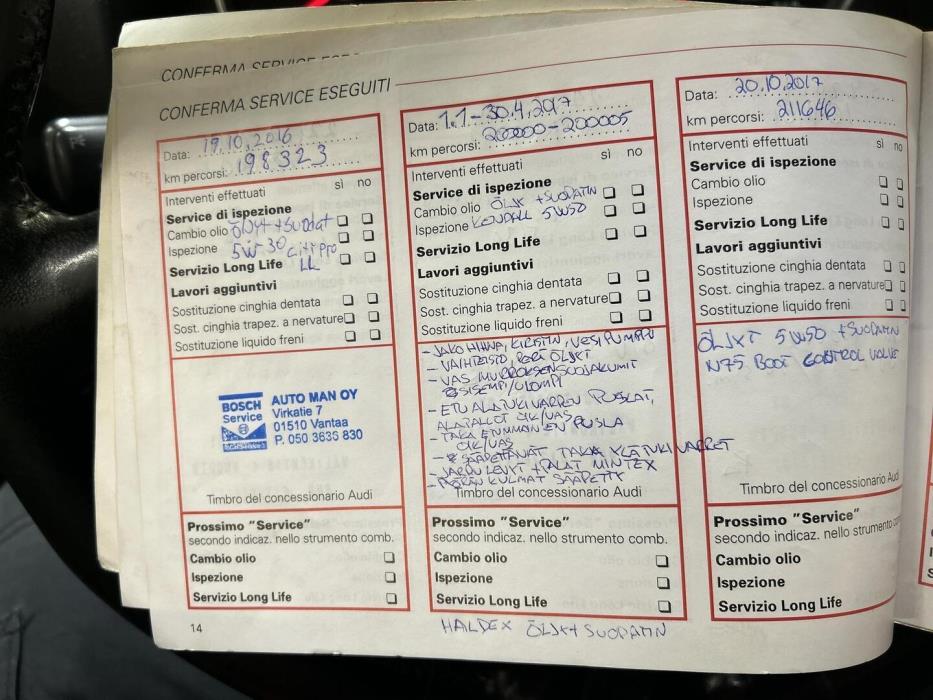 CONFERMA SERVICE ESEGUITI
CONFERMA SERVICE ESEGUITI
Data: 19.10.2016
km percorsi: 198323
Interventi effettuati sì no
Service di ispezione
Cambio olio öljyt + suodat
Ispezione 5W30 Citi Pro
Servizio Long Life LL
Lavori aggiuntivi
Sostituzione cinghia dentata
Sost. cinghia trapez. a nervature
Sostituzione liquido freni
BOSCH
Service
AUTO MAN OY
Virkatie 7
01510 Vantaa
P. 050 3635 830
Timbro del concessionario Audi
Prossimo "Service"
secondo indicaz. nello strumento comb.
Cambio olio
Ispezione
Servizio Long Life
14
Data: 1.1 - 30.4.2017
km percorsi: 200000 - 200005
Interventi effettuati sì no
Service di ispezione
Cambio olio ÖLJYT + SUODATIN
Ispezione KENDALL 5W50
Servizio Long Life
Lavori aggiuntivi
Sostituzione cinghia dentata
Sost. cinghia trapez. a nervature
Sostituzione liquido freni
- JAKOHIHNA, KIRISTIN, VESIPUMPPU
- VAIHTEISTO, PERÄ ÖLJYT
- VAS MURROKSENSUOJAKUMIT
SISEMPI/ULOMPI
- ETU ALATUKIVARREN PUSLAT,
ALAPALLOT OIK/VAS
- TAKA ETUMMAINEN PUSLA
OIK/VAS
- SÄÄDETTÄVÄT TAKA YLÄTUKIVARRET
- JARRULEVYT + PALAT MINTEX
- PYÖRÄNKULMAT SÄÄDETTY
Timbro del concessionario Audi
Prossimo "Service"
secondo indicaz. nello strumento comb.
Cambio olio
Ispezione
Servizio Long Life
HALDEX ÖLJY + SUODATIN
Data: 20.10.2017
km percorsi: 211646
Interventi effettuati sì no
Service di ispezione
Cambio olio
Ispezione
Servizio Long Life
Lavori aggiuntivi
Sostituzione cinghia dentata
Sost. cinghia trapez. a nervature
Sostituzione liquido freni
ÖLJYT 5W50 + SUODATIN
N75 BOOT CONTROL VALVE
Timbro del concessionario Audi
Prossimo "Service"
secondo indicaz. nello strumento
Cambio olio
Ispezione
Servizio Long Life